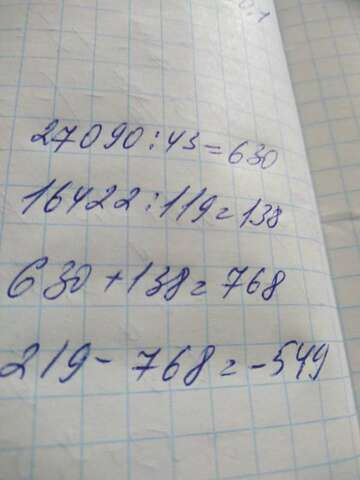 27090:43=630
16422:119=138
630+138=768
219-768=-549